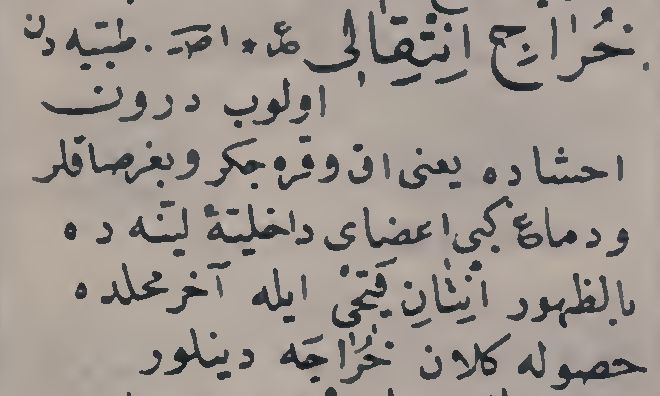 خُرَاج اِنْتِقَالی عع * اصـ . طبّیه دن
اولوب درون
احشاده یعنی اق وقره جکر وبغرصاقلر
ودماغ کبی اعضای داخلیّۀ لیّنه ده
بالظهور اَنِتَانِ قَیْحی ایله آخر محلده
حصوله کلان خُرَاجَه دینلور